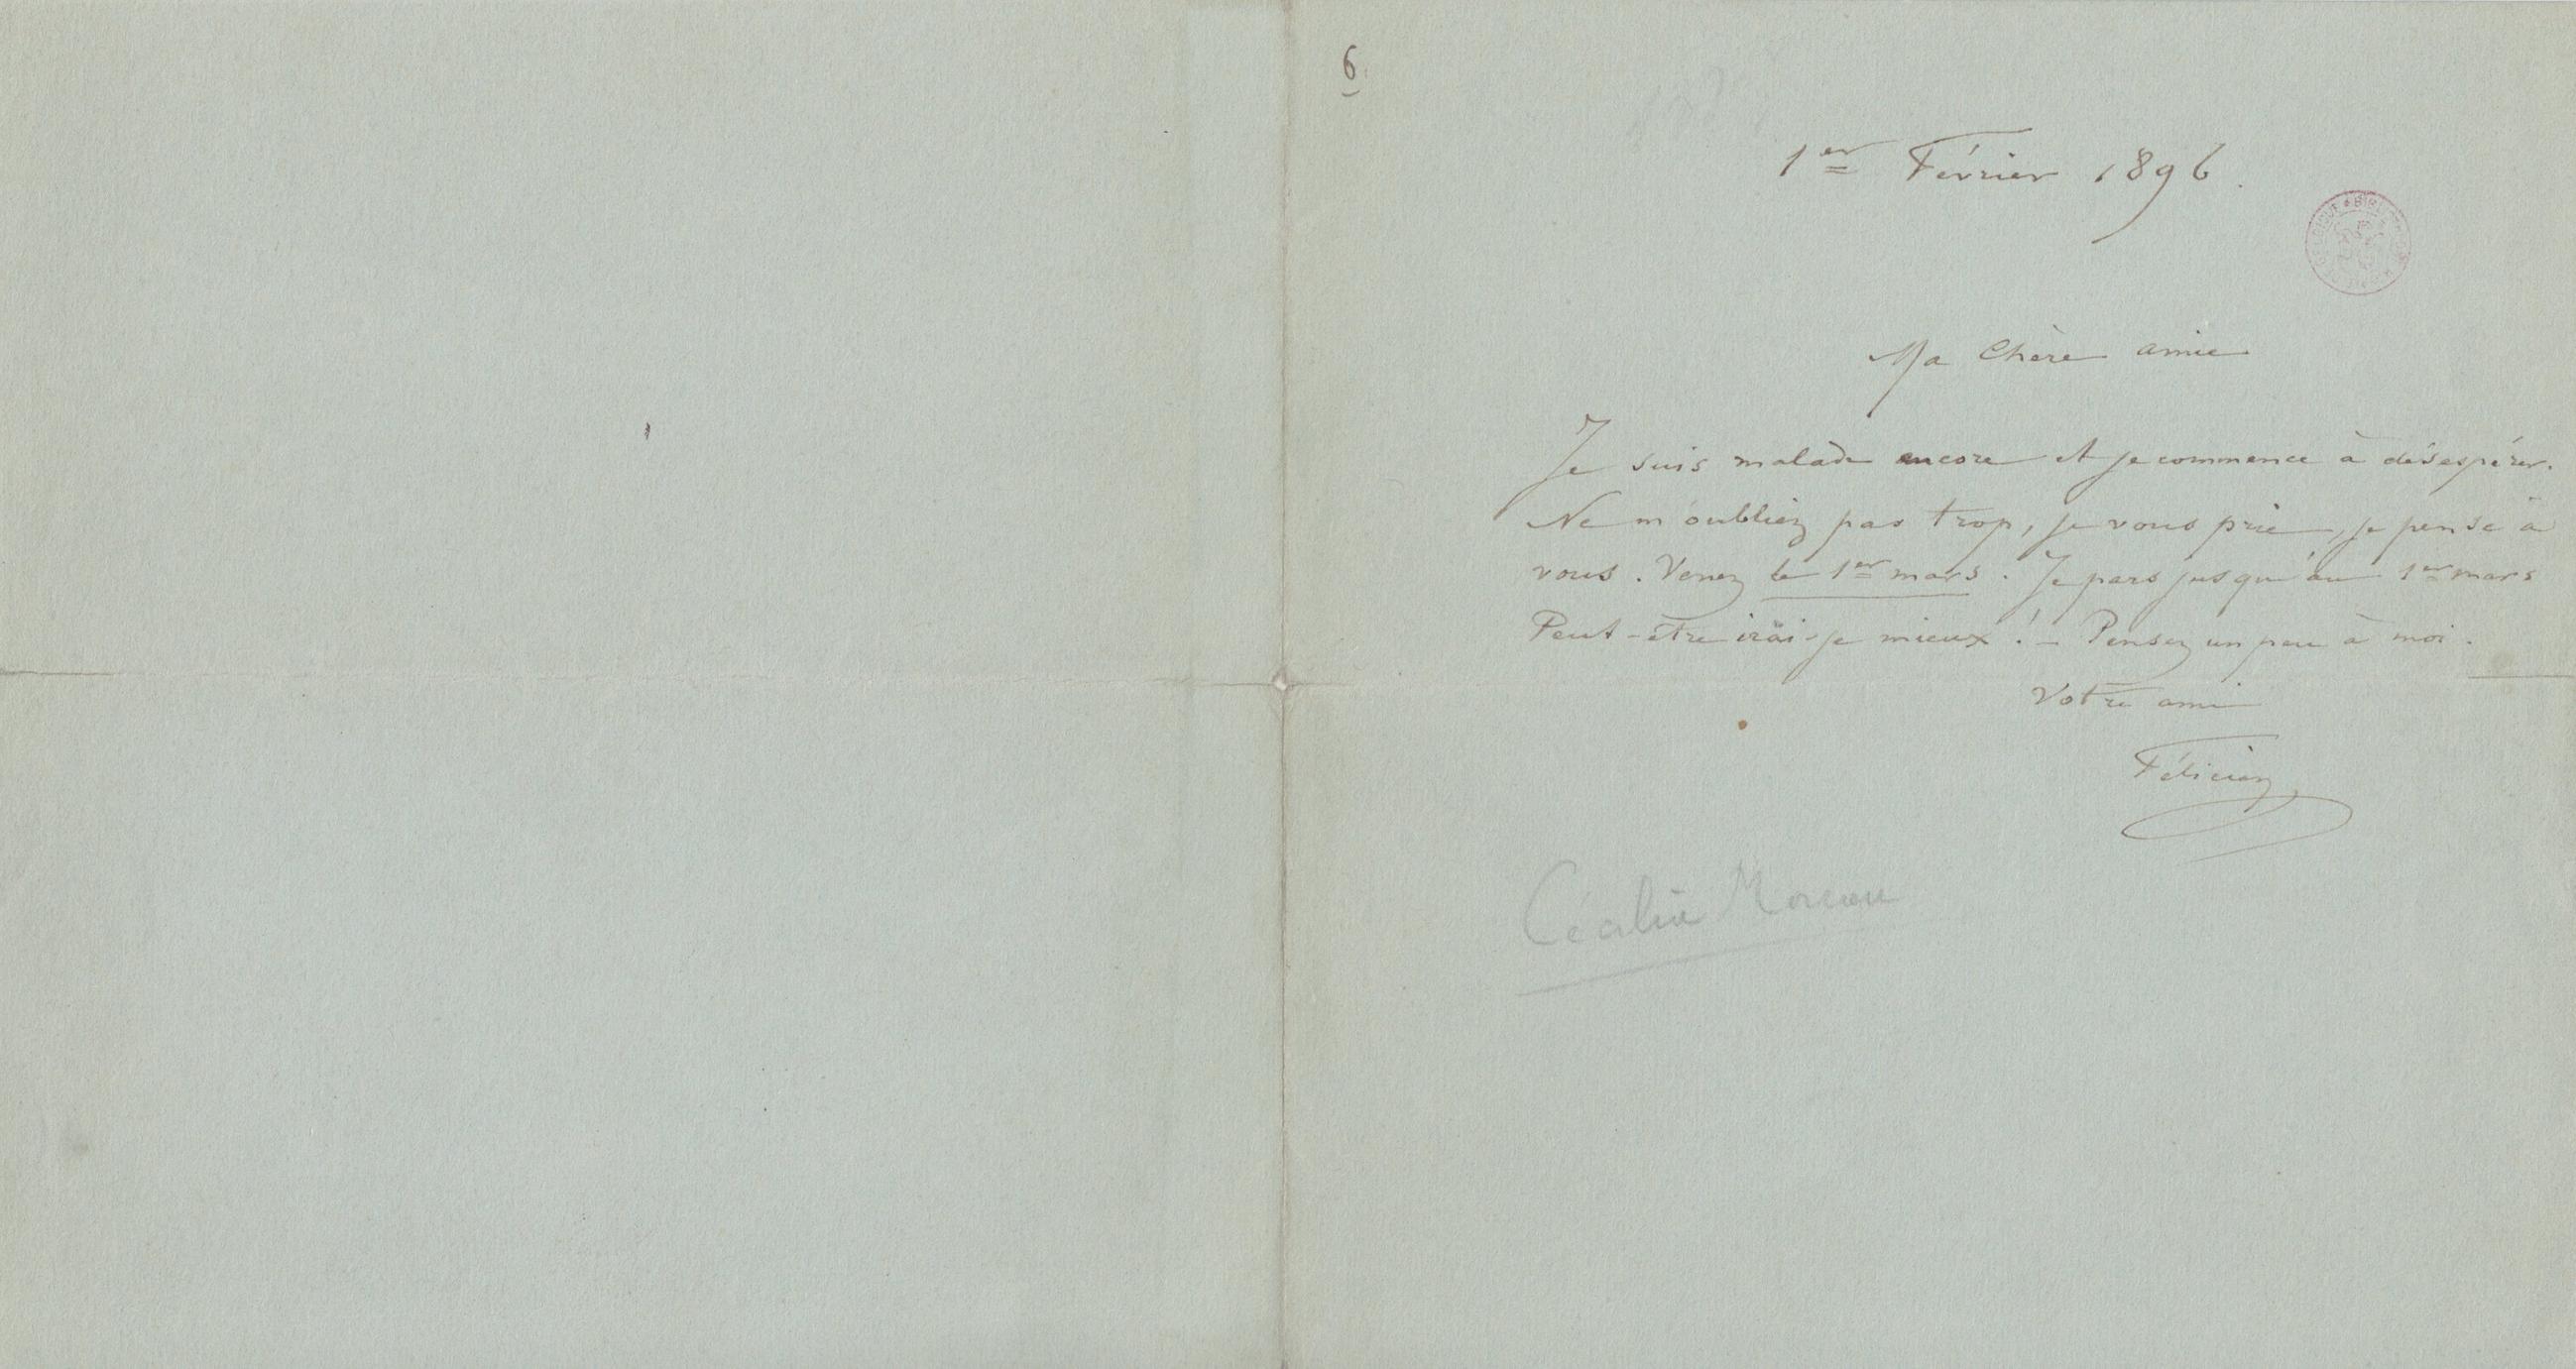 6
1er Février 1896.
Ma Chère amie
Je suis malade encore et je commence à désespérer.
Ne m'oubliez pas trop, je vous prie, je pense à
vous. Venez le 1er mars. Je pars jusqu'au 1er mars
Peut-être irai-je mieux ! – Pensez un peu à moi.
Votre ami
Félicien